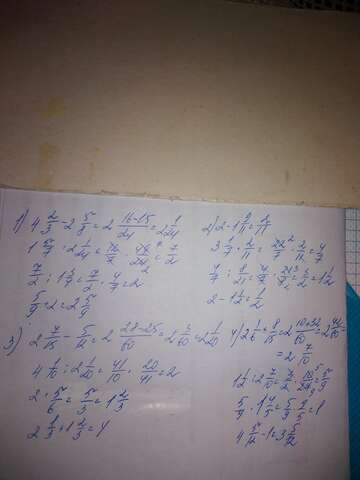 1) 4 2/3 - 2 5/8 = 2 (16-15)/24 = 2 1/24
1 5/7 : 2 1/24 = /7 · /24 = 7/2
7/2 : 1 3/4 = 7/2 · 4/7 = 2
5/9 + 2 = 2 5/9
2) 2 - 1 9/11 = 2/11
3 1/7 · 2/11 = 22/7 · 2/11 = 4/7
= 1 1/2
2 - 1 1/2 = 1/2
3) 2 7/15 - 5/12 = 2 (28-25)/60 = 2 3/60 = 2 1/20
4 1/10 : 2 1/20 = 41/10 · 20/41 = 2
2 · 5/6 = 5/3 = 1 2/3
2 1/3 + 1 2/3 = 4
4) 2 1/6 + 8/15 = 2
= 2 7/10
1 1/2 : 2 7/10 = · 10/27 = 5/9
5/9 · 1 4/5 = 5/9 · 9/5 = 1
4 5/12 - 1 = 3 5/12